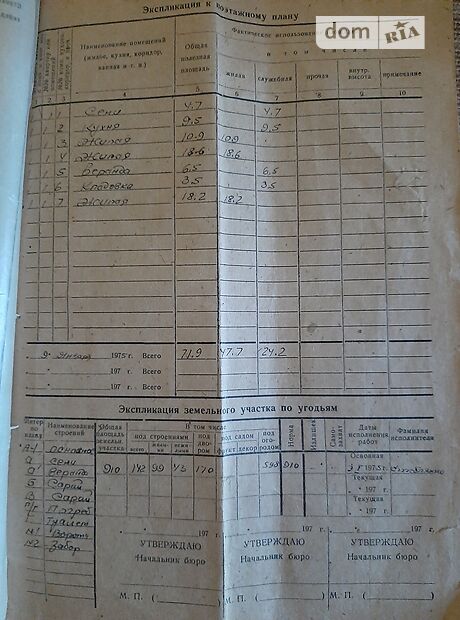 Экспликация к поэтажному плану
dom RIA
Фактическое использование
в том числе
Наименование помещений (жилое, кухня, коридор, ванная и т. п.)
Общая полезная площадь
жилая
служебная
прочая
внутр. высота
примечание
2 3 4 5 6 7 8 9 10
1 1 Сени 4,7 4,7
1 2 Кухня 9,5 9,5
1 3 Жилая 10,9 10,9
1 4 Жилая 18,6 18,6
1 5 Веранда 6,5 6,5
1 6 Кладовка 3,5 3,5
1 7 Жилая 18,2 18,2
9 января 1975 г. Всего 71,9 47,7 24,2
197 г. Всего
197 г. Всего
Экспликация земельного участка по угодьям
Наименование строений
Общая площадь земельн. участка
В том числе
под строениями
всего
жилыми
под двором
под садом
фрукт.
декор.
под огородом
Норма
Излишек
Самозахват
Даты исполнения работ
Фамилия исполнителя
910 142 99 43 170 598 910
Основная
1975 г.
Текущая
197 г.
Текущая
197 г.
А-1 основн.
а Сени
а' Веранда
Б Сарай
В Сарай
Погреб
Г Туалет
№1 Ворота
№2 Забор
197 г. 197 г. 197 г.
УТВЕРЖДАЮ УТВЕРЖДАЮ УТВЕРЖДАЮ
Начальник бюро Начальник бюро Начальник бюро
М. П. ( ) М. П. ( ) М. П. ( )